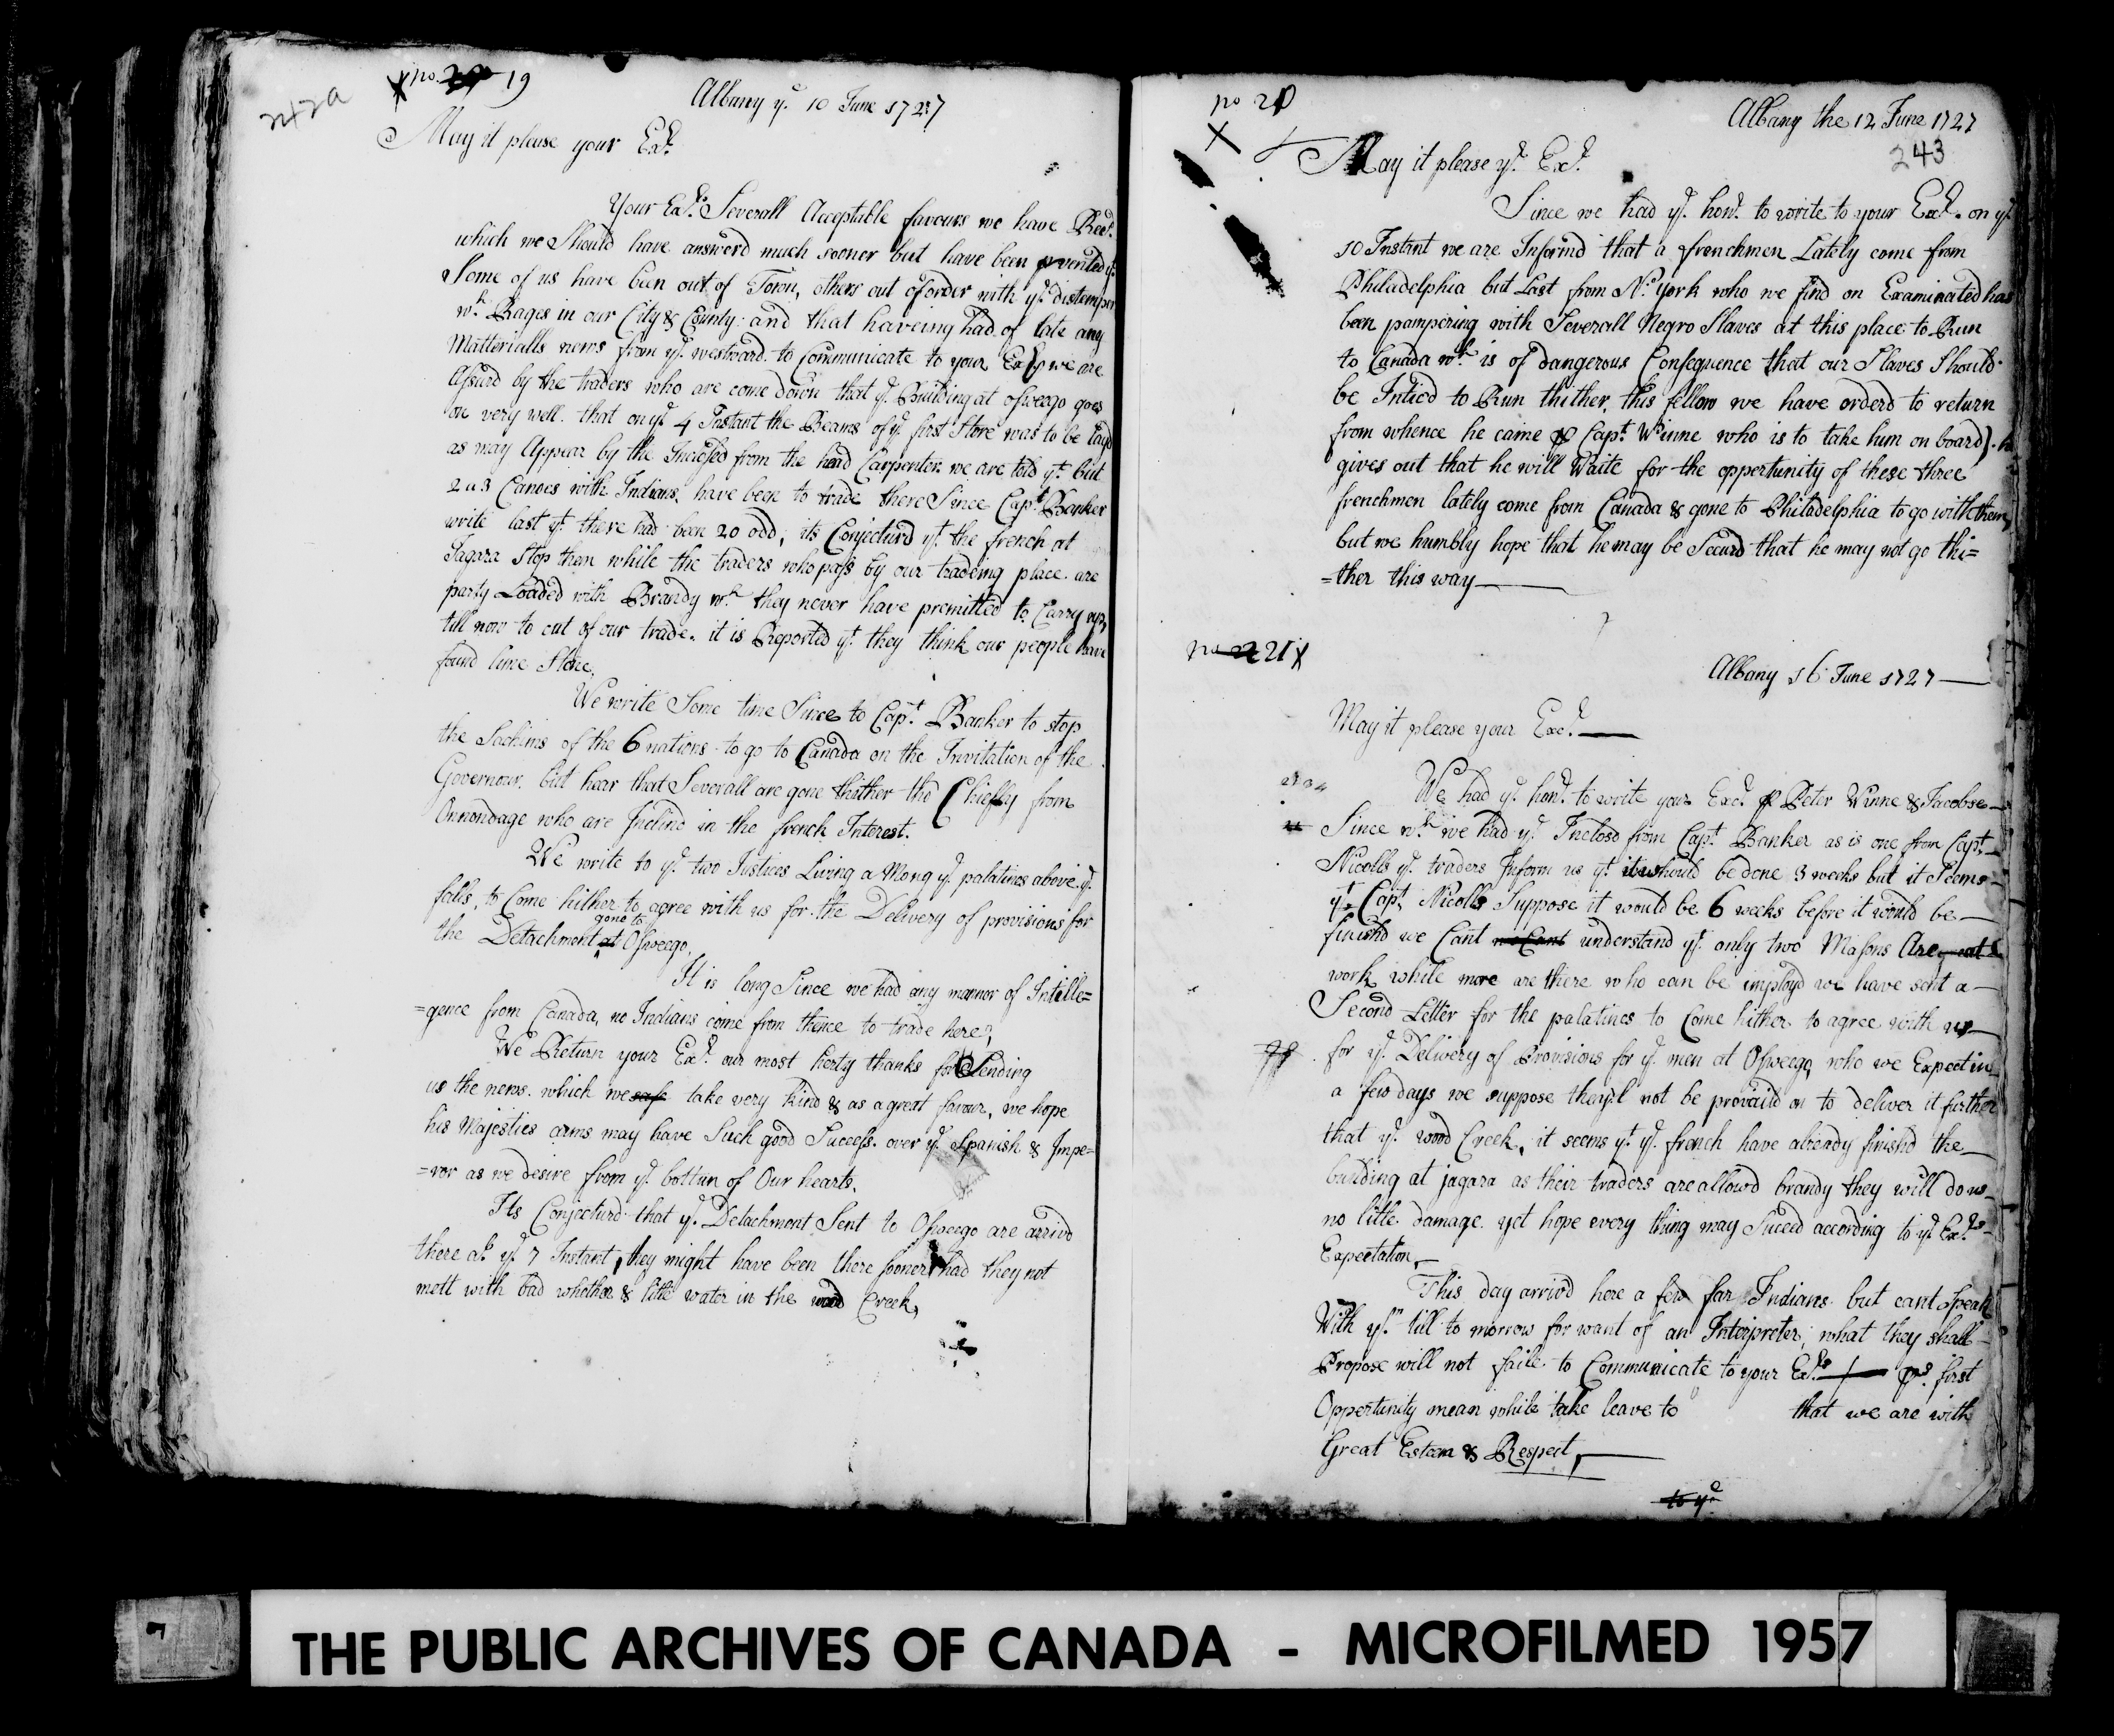 242a
X no. 20 19
Albany ye. 10 June 1727
May it please your Excy.
Your Excys. Severall Acceptable favours we have Recd.
which we Should have answerd much sooner but have been prvented yt
Some of us have been out of Town, others out of order with ye. distemper
wh. Rages in our City & County: and that haveing had of late any
Matterialls news from ye. westward to Communicate to your Excy we are
Assurd by the traders who are come down that ye. Building at osweego goes
on very well. that on ye. 4 Instant the Beams of ye. first Store was to be layd
as may Appear by the Inclosed from the head Carpenter. we are told yt. but
2 a 3 Canoes with Indians, have been to trade there Since Capt. Banker
write last yt. there had been 20 odd; its Conjecturd yt. the french at
Jagara Stop them while the traders who pass by our tradeing place are
party Loaded with Brandy wh. they never have premitted to Carry up,
till now to cut of our trade. it is Reported yt. they think our people have
found lime Stone.
We write Some time Since to Capt. Banker to stop
the Sachims of the 6 nations to go to Canada on the Invitation of the
Governour. but hear that Severall are gone thither tho Chiefly from
Onnondage who are Inclind in the french Interest.
We write to ye. two Justices Living a Mong ye. palatines above ye.
falls, to Come hither to agree with us for the Delivery of provisions for
gone to
the Detachment at Osweego.
It is long Since we had any manner of Intelle=
=gence from Canada, no Indians come from thence to trade here;
We Return your Excy. our most herty thanks for Sending
us the news. which we take very kind & as a great favour, we hope
his Majesties arms may have Such good Success. over ye. Spanish & Impe=
=ror as we desire from ye. bottum of Our hearts.
Its Conjecturd that ye. Detachment Sent to Osweego are arrivd
there abt. ye. 7 Instant, they might have been there sooner had they not
mett with bad whether & litle water in the wood Creek,
no 20
X
Albany the 12 June 1727
243
May it please yr. Excy.
Since we had ye. honr. to write to your Excy. on ye.
10 Instant we are Informd that a frenchmen Lately come from
Philadelphia but Last from N. york who we find on Examinated has
been pampering with Severall Negro Slaves at this place to Run
to Canada wh. is of dangerous Consequence that our Slaves Should
be Inticd to Run thither. this fellow we have orderd to return
from whence he came p Capt. Winne who is to take him on board). he
gives out that he will Waite for the oppertunity of these three
frenchmen lately come from Canada & gone to Philadelphia to go with them,
but we humbly hope that he may be Secured that he may not go thi=
=ther this way
no 22 21 X
Albany 16 June 1727
May it please your Exc.
We had ye. honr. to write your Excy. p Peter Winne & Jacobse
Since wh. we had ye. Inclosd from Capt. Banker as is one from Capt.
Nicolls ye. traders Inform us yt. it should be done 3 weeks but it Seems
yt. Capt. Nicolls Suppose it would be 6 weeks before it would be
finishd we Cant we Cant understand yt. only two Masons Are at
work while more are there who can be imployd we have sent a
Second Letter for the palatines to Come hither to agree with us
for ye. Delivery of Provisions for ye. men at Osweego, who we Expect in
a few days we suppose they'l not be provaild on to deliver it further
that ye. wood Creek, it seems yt. ye. french have already finishd the
building at jagara as their traders are allowd brandy they will do us
no litle damage. yet hope every thing may Suceed according to yr. Excys.
Expectation,
This day arrivd here a few far Indians but cant Speak
With ym. till to morrow for want of an Interpreter; what they shall
Propose will not faile to Communicate to your Excy. first
Oppertunity mean while take leave to that we are with
Great Esteem & Respect,
to ye
THE PUBLIC ARCHIVES OF CANADA - MICROFILMED 1957